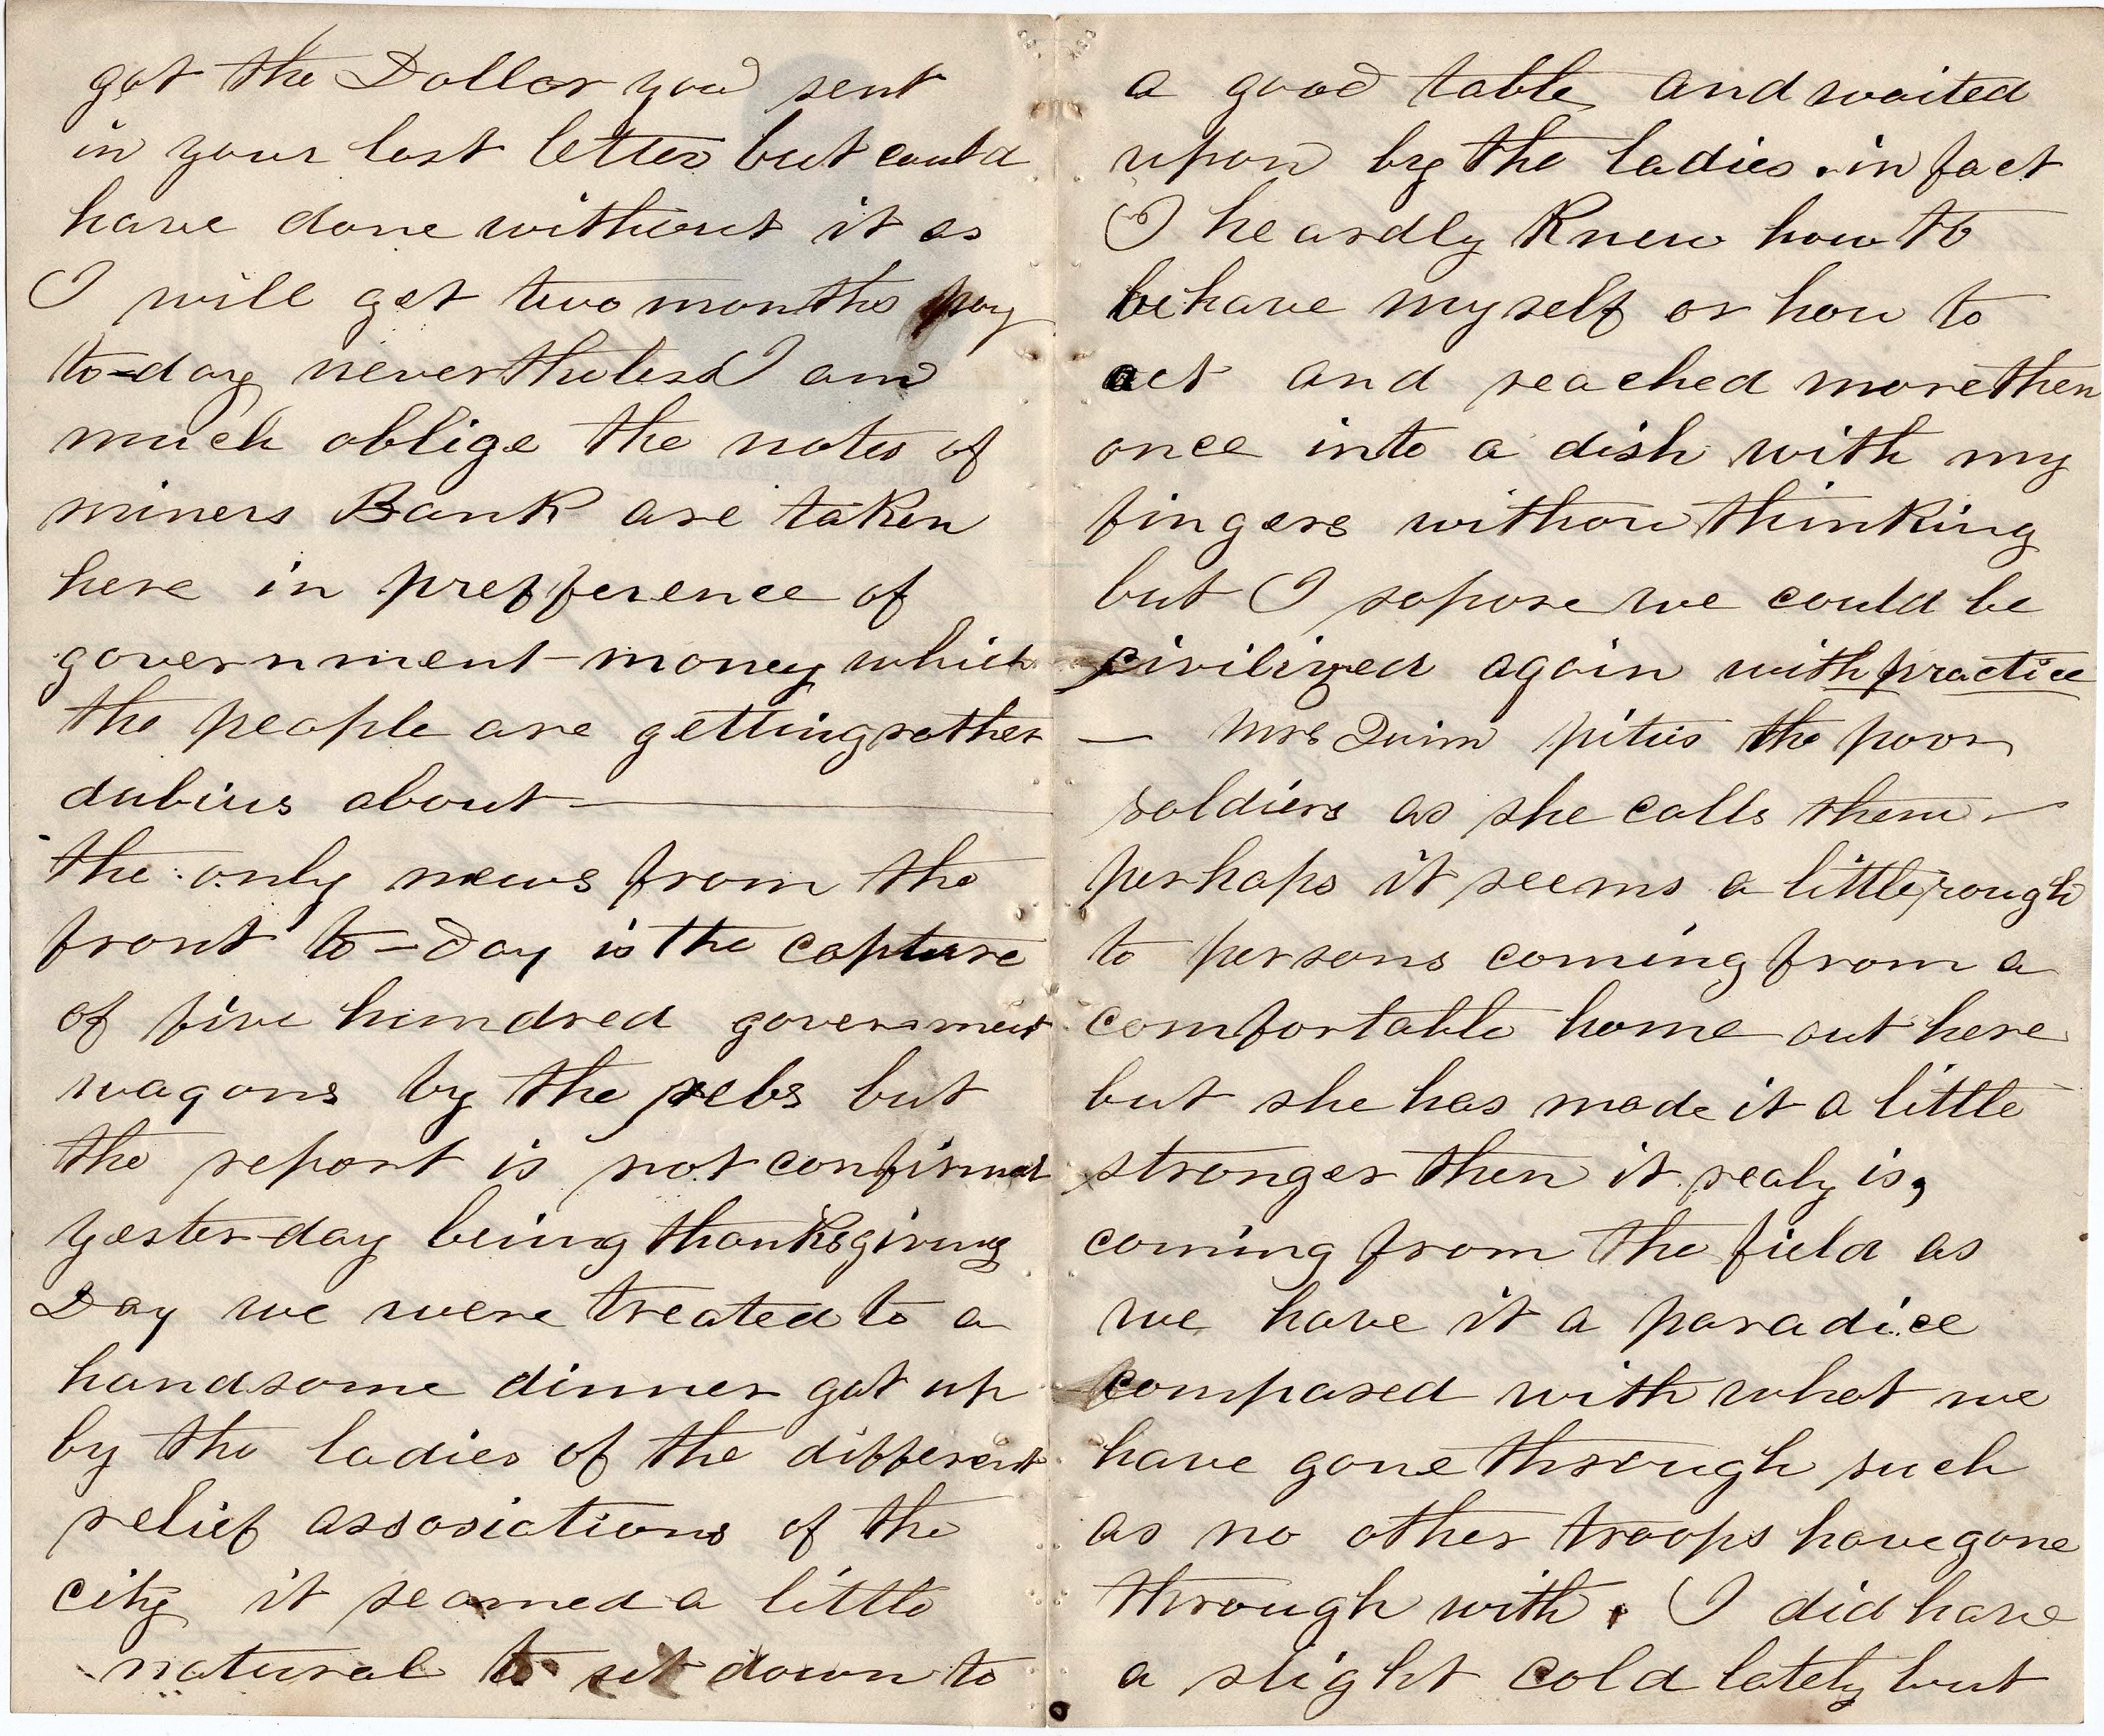 got the Dollar you sent
in your last letter but could
have done without it as
I will get two months pay
to=day nevertheless I am
much oblige the notes of
miners Bank are taken
here in prefference of
government money which
the people are getting rather
dubius about —
the only news from the
front to-day is the capture
of five hundred government
wagons by the rebs but
the report is not confirmed
yesterday being thanksgiving
Day we were treated to a
handsome dinner got up
by the ladies of the different
relief assosiations of the
city it seamed a little
natural to sit down to
a good table and waited
upon by the ladies . in fact
I heardly knew how to
behave myself or how to
act and reached more then
once into a dish with my
fingers withou thinking
but I sopose we could be
civilized again with practice
— Mrs Quinn pities the poor
soldiers as she calls them —
perhaps it seems a little rough
to persons coming from a
comfortable home out here
but she has made it a little
stronger then it realy is,
coming from the field as
we have it a paradice
compared with what we
have gone through such
as no other troops have gone
through with. I did have
a slight cold lately but